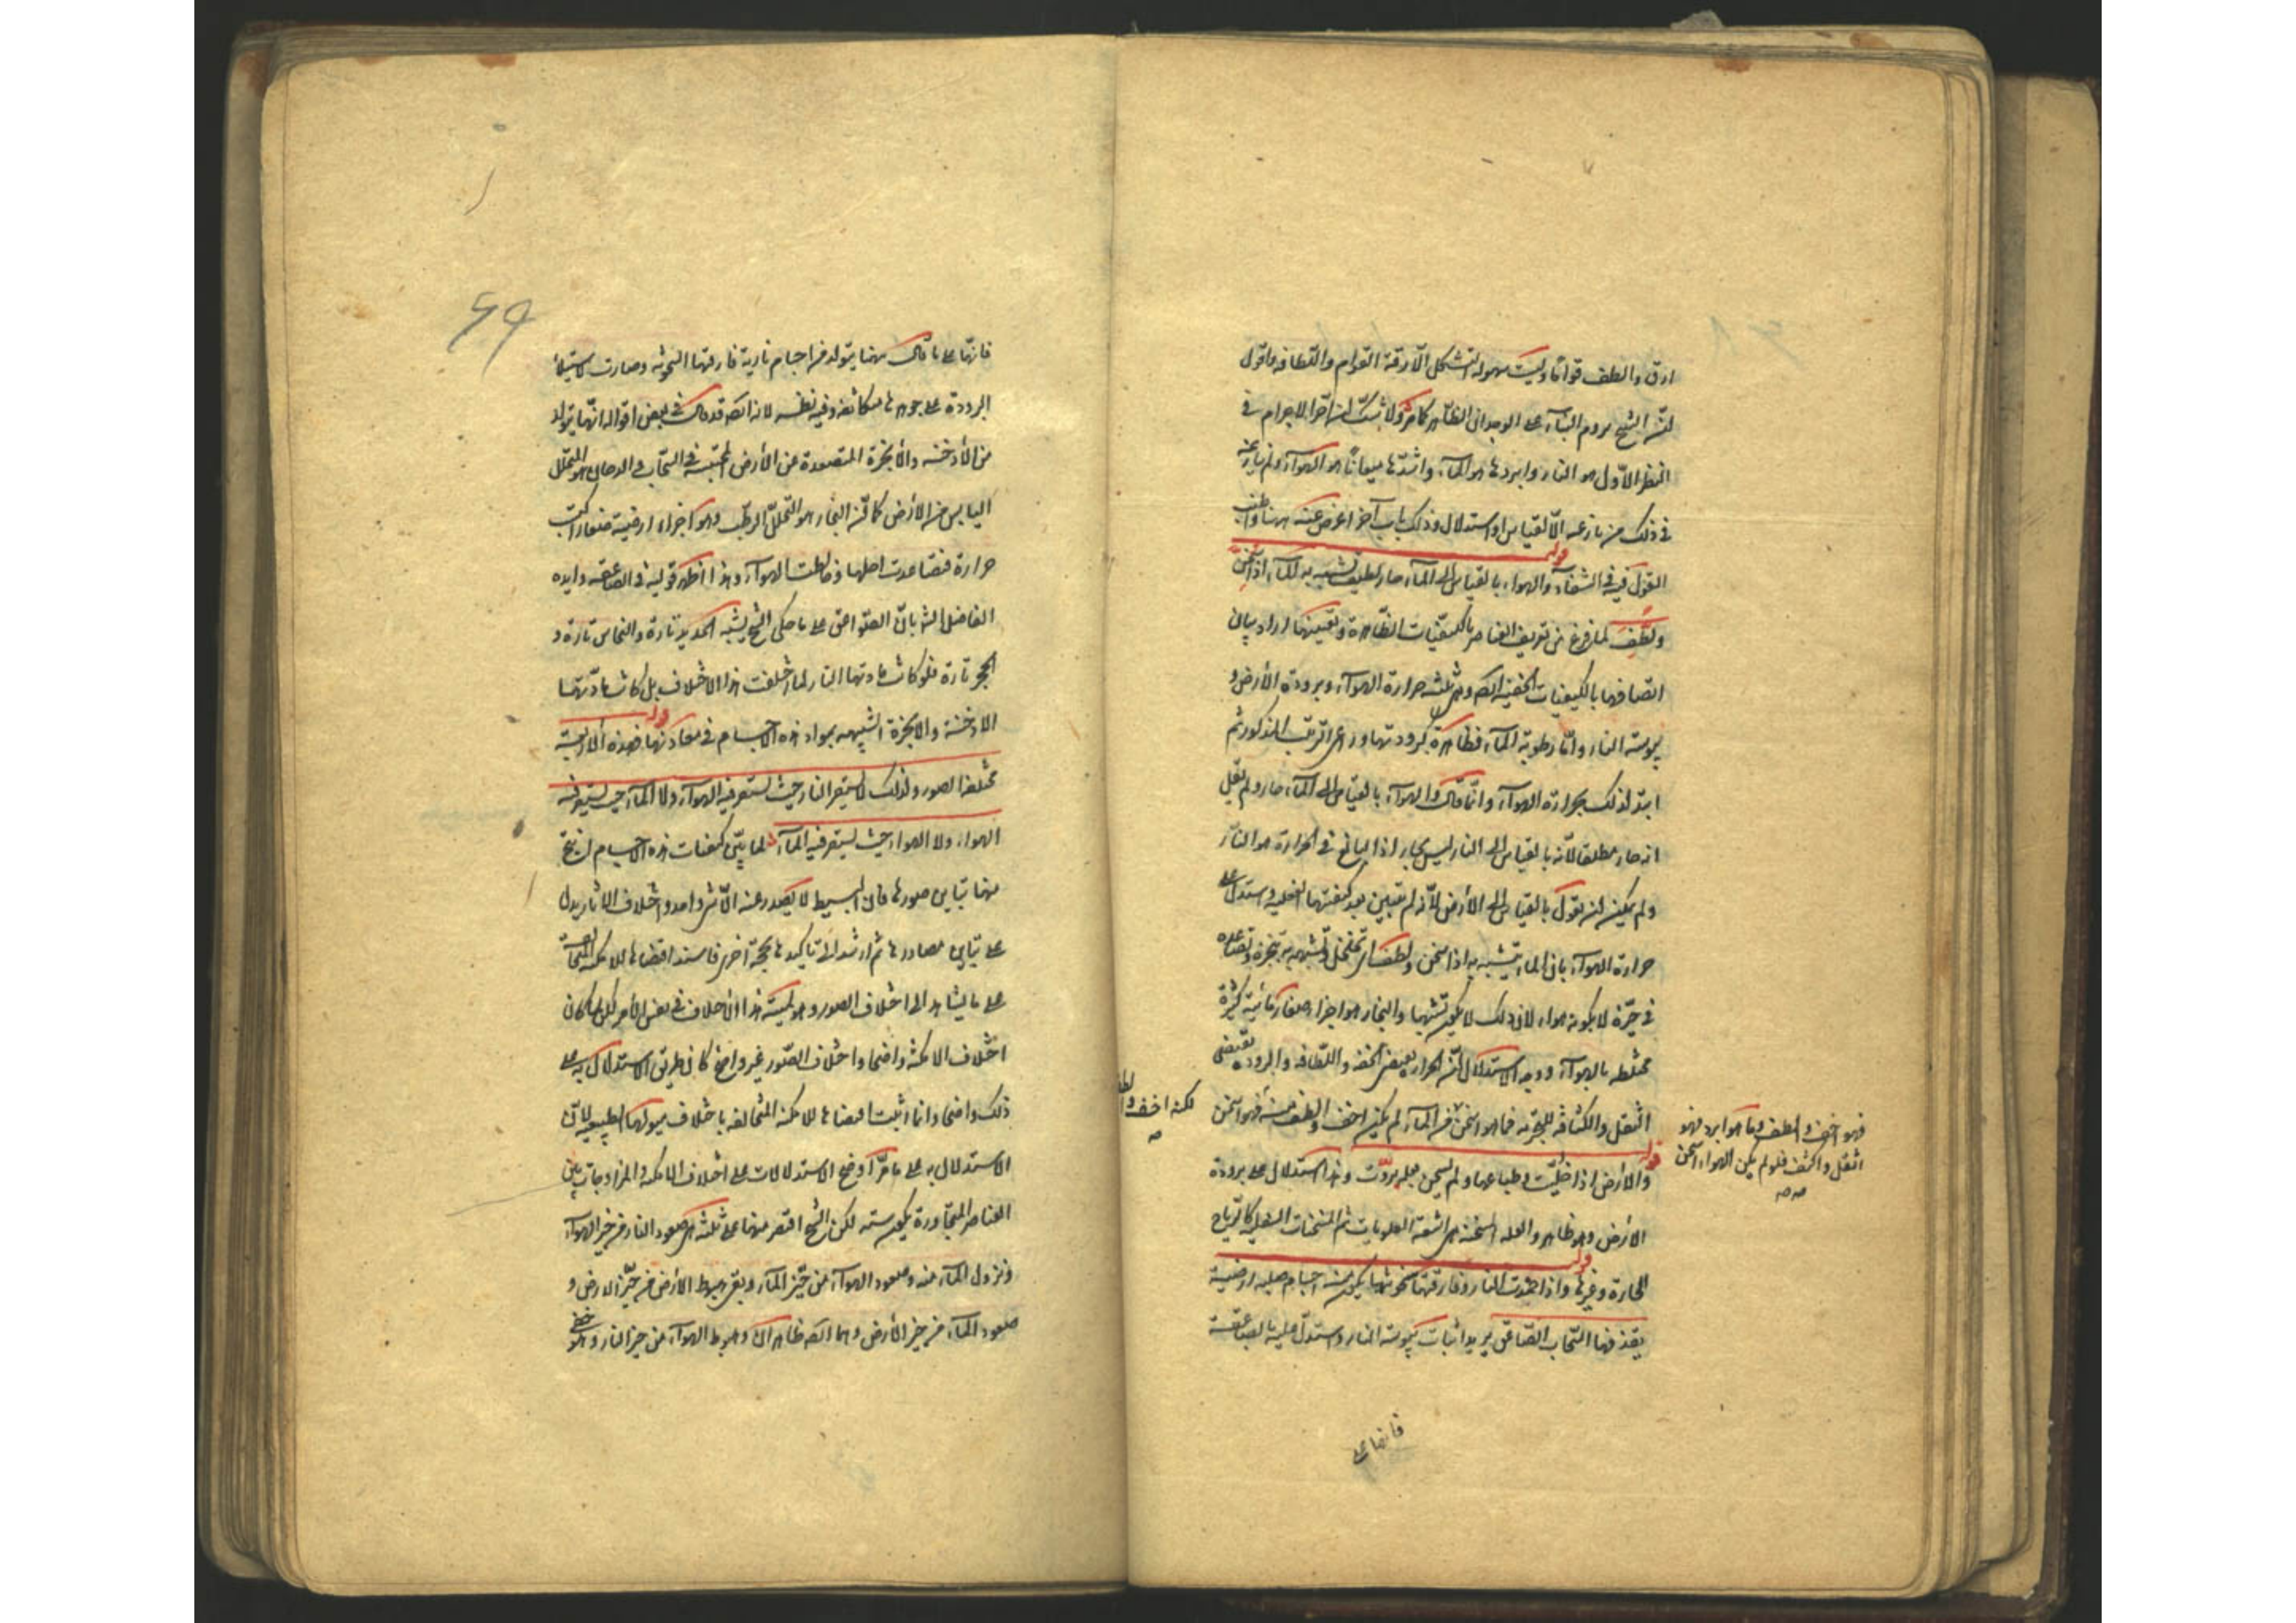 ارق والطف قواما وليست سهولة التشكل الا رقة القوام واللطافة واقول
ان الشيخ يروم البناء على الوجدان الظاهر كما مر ولا شك ان احر الاجرام في
النظر الاول هو النار وابردها هو الماء واشدها ميعانا هو الهواء ولم ينازعه
في ذلك من نازعه الا لقياس او استدلال وذلك باب آخر اعرض عنه هنا واطنب
القول فيه في الشفاء قوله والهواء بالقياس الى الماء حار لطيف تشبه به الماء اذا سخن
ولطف لما فرغ من تعريف العناصر بالكيفيات الظاهرة وتعيينها اراد بيان
اتصافها بالكيفيات الخفية ايضا وهي ثلثة حرارة الهواء وبرودة الارض و
يبوسة النار واما رطوبة الماء فظاهرة كبرودتها وراعى الترتيب المذكور ثم
ابتدا لذلك بحرارة الهواء وانما قال والهواء بالقياس الى الماء حار ولم يقل
انه حار مطلقا لانه بالقياس الى النار ليس بحار اذ البالغ في الحرارة هو النار
ولم يمكن ان يقول بالقياس الى الارض لانه لم يتبين بعد كيفيتها الفعلية واستدل على
حرارة الهواء بان الماء يتشبه به اذا سخن ولطف اي تخلخل وتشبهه به تبخره وتصاعده
في حيزه لا بكونه هواء لان ذلك لا يكون تشبها والبخار هو اجزاء صغار مائية كثيرة
مختلطة بالهواء ووجه الاستدلال ان الحرارة تقتضي الخفة واللطافة والبرودة تقتضي
الثقل والكثافة للتجربة فما هو اسخن من الماء لم يكن اخف والطف منه فهو اسخن
لكنه اخف والطف
فهو اخف والطف وما هو ابرد فهو
اثقل واكثف فلو لم يكن الهواء اسخن
صح صح
قوله والارض اذا خليت وطباعها ولم تسخن بعلة بردت وهذا استدلال على برودة
الارض وهو ظاهر والعلة المسخنة هي اشعة العلويات ثم المسخنات السفلية كالرياح
الحارة وغيرها قوله واذا خمدت النار وفارقتها سخونتها يكون منه اجسام صلبة ارضية
يقذفها السحاب الصاعق يريد اثبات يبوسة النار واستدل عليه بالصاعقة
فانها على
٤٩
فانها على ما قال ههنا يتولد من اجسام نارية فارقتها السخونة وصارت لاستيلاء
البرودة على جوهرها متكاثفة وفيه نظر لانه ايضا قد قال في بعض اقواله انها يتولد
من الأدخنة والأبخرة المتصعدة عن الأرض المحتبسة في السحاب والدخان هو المتحلل
اليابس من الأرض كما ان البخار هو المتحلل الرطب وهو اجزاء ارضية صغار اكتسبت
حرارة فتصاعدت لاجلها وخالطت الهواء وهذا اظهر قوليه في الصاعقة وايده
الفاضل الش بان الصواعق على ما حكى الشيخ يشبه الحديد تارة والنحاس تارة و
الحجر تارة فلو كانت مادتها النار لما اختلفت هذا الاختلاف بل كانت مادتها
الادخنة والابخرة الشبيهة بمواد هذه الاجسام في معادنها قوله فهذه الاربعة
مختلفة الصور ولذلك لا يستقر النار حيث يستقر فيه الهواء ولا الماء حيث يستقر فيه
الهواء ولا الهواء حيث يستقر فيه الماء لما بين كيفيات هذه الاجسام انتج
منها تباين صورها فان البسيط لا يصدر عنه الا شيء واحد واختلاف الاثار يدل
على تباين مصادرها ثم ارشد الى تأكيدها بحجة اخرى فاسند اقتضاها للامكنة المتخالفة
على ما يشاهد الى اختلاف الصور وهو لمية هذا الاختلاف في نفس الأمر لكن لما كان
اختلاف الامكنة واضحا واختلاف الصور غير واضح كان طريق الاستدلال به على
ذلك واضحا وانما اثبت اقتضاها للامكنة المتخالفة باختلاف ميولها الطبيعية لان
الاستدلال به على ما مر اوضح الاستدلالات على اختلاف الامكنة والمزاوجات بين
العناصر المتجاورة يكون ستة لكن الشيخ اقتصر منها على ثلثة هي صعود النار من حيز الهواء
ونزول الماء عنه وصعود الهواء عن حيز الماء وبقي هبوط الأرض من حيز الارض و
صعود الماء من حيز الأرض وهما ايضا ظاهران وهبوط الهواء من حيز النار وهو خفي